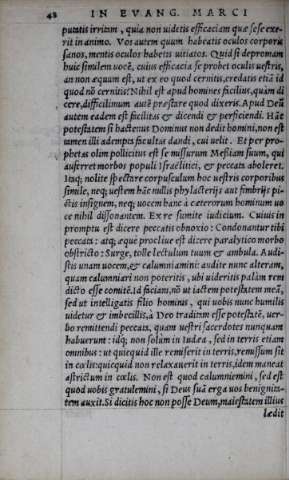 42 IN EVANG. MARCI
putatis irritam, quia non uidetis efficaciam quæ sese exe-
rit in animo. Vos autem quum habeatis oculos corporis
sanos, mentis oculos habetis uitiatos. Quid si depromam
huic similem uocē, cuius efficacia se probet oculis uestris,
an non æquum est, ut ex eo quod cernitis, credatis etiā id
quod nō cernitis? Nihil est apud homines facilius, quàm di
cere, difficilimum autē præstare quod dixeris. Apud Deū
autem eadem est facilitas & dicendi & perficiendi. Hāc
potestatem si hactenus Dominus non dedit homini, non est
tamen illi adempta facultas dandi, cui uelit. Et per pro-
phetas olim pollicitus est se missurum Messiam suum, qui
auferret morbos populi Israëlitici, & peccata aboleret.
Itaq; nolite spectare corpusculum hoc uestris corporibus
simile, neq; uestem hāc nullis phylacterijs aut fimbrijs pi-
ctis insignem, neq; uocem hanc à cæterorum hominum uo
ce nihil dissonantem. Ex re sumite iudicium. Cuiuis in
promptu est dicere peccatis obnoxio: Condonantur tibi
peccata: atq; æque procliue est dicere paralytico morbo
obstricto: Surge, tolle lectulum tuum & ambula. Audi-
stis unam uocem, & calumniamini: audite nunc alteram,
quam calumniari non poteritis, ubi uideritis palàm rem
dicto esse comitē. Id faciam, nō ut iactem potestatem meā,
sed ut intelligatis filio hominis, qui uobis nunc humilis
uidetur & imbecillis, à Deo traditam esse potestatē, uer-
bo remittendi peccata, quam uestri sacerdotes nunquam
habuerunt: idq; non solùm in Iudæa, sed in terris etiam
omnibus: ut quicquid ille remiserit in terris, remissum sit
in cœlis: quicquid non relaxauerit in terris, idem maneat
astrictum in cœlis. Non est quod calumniemini, sed est
quod uobis gratulemini, si Deus suā erga uos benignita-
tem auxit. Si dicitis hoc non posse Deum, maiestatem illius
lædit